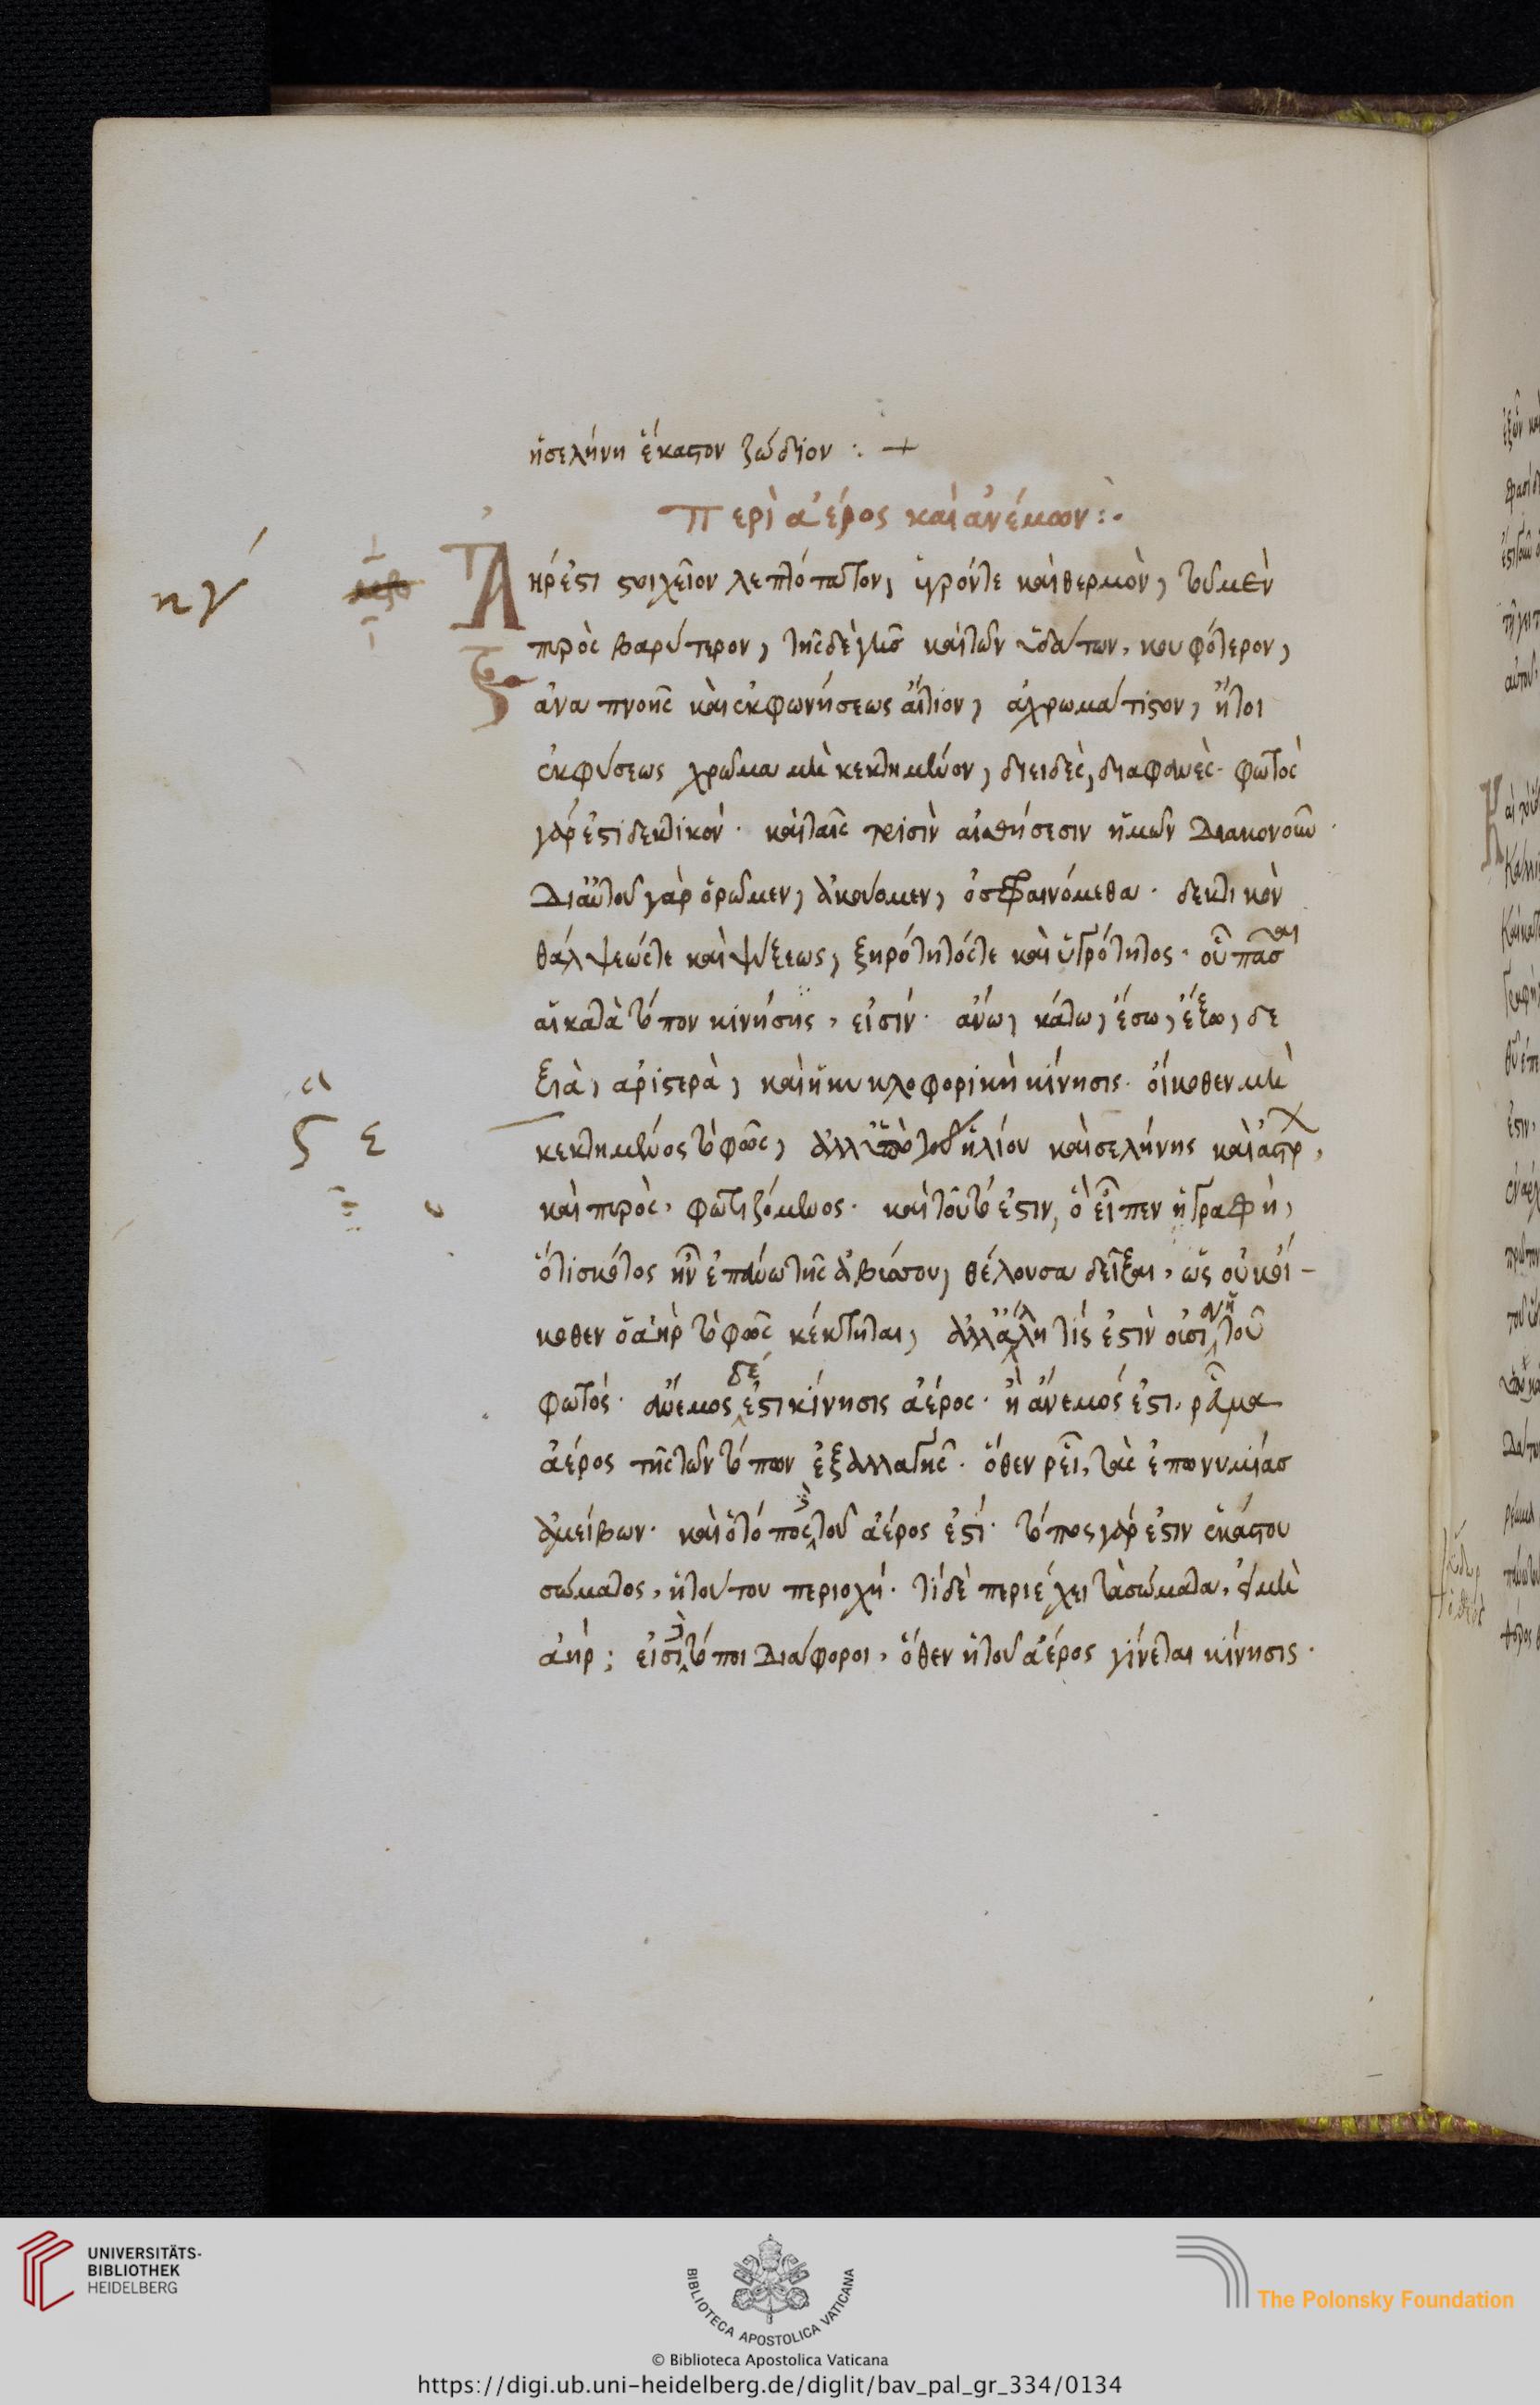 ἡ σελήνη ἕκαστον ζώδιον : +
Περὶ ἀέρος καὶ ἀνέμων :·
Ἀήρ ἐστι στοιχεῖον λεπτότατον, ὑγρόν τε καὶ θερμὸν, τοῦ μὲν
κγ
πυρὸς βαρύτερον, τῆς δὲ γῆς καὶ τῶν ὑδάτων, κουφότερον,
ἀναπνοῆς καὶ ἐκφωνήσεως αἴτιον, ἀχρωμάτιστον, ἤτοι
ἐκ φύσεως χρῶμα μὴ κεκτημένον, διειδὲς, διαφανὲς· φωτὸς
γάρ ἐστι δεκτικόν· καὶ ταῖς τρισὶν αἰσθήσεσιν ἡμῶν διακονοῦν·
δι' αὐτοῦ γὰρ ὁρῶμεν, ἀκούομεν, ὀσφραινόμεθα· δεκτικὸν
θάλψεώς τε καὶ ψύξεως, ξηρότητός τε καὶ ὑγρότητος· οὗ πᾶσαι
αἱ κατὰ τόπον κινήσης, εἰσίν· ἄνω, κάτω, ἔσω, ἔξω, δε
ξιὰ, ἀριστερὰ, καὶ ἡ κυκλοφορικὴ κίνησις· οἴκοθεν μὴ
κεκτημένος τὸ φῶς, ἀλλ' ὑπὸ τοῦ ἡλίου καὶ σελήνης καὶ ἄστρ,
καὶ πυρὸς, φωτιζόμενος· καὶ τοῦτό ἐστιν, ὃ εἶπεν ἡ Γραφὴ,
ὅτι σκότος ἦν ἐπάνω τῆς ἀβύσσου, θέλουσα δεῖξαι, ὡς οὐκ οἴ-
κοθεν ὁ ἀὴρ τὸ φῶς κέκτηται, ἀλλ' ἄλλη τίς ἐστὶν οὐσία ἡ τοῦ
φωτός· ἄνεμος δέ ἐστι κίνησις ἀέρος· ἢ ἄνεμός ἐστι, ῥεῦμα
ἀέρος τῆς τῶν τόπων ἐξαλλαγῆς· ὅθεν ῥεῖ, τὰς ἐπωνυμίας
ἀμείβων· καὶ ὁ τόπος δὲ τοῦ ἀέρος ἐστί· τόπος γάρ ἐστιν ἑκάστου
σώματος, ἡ τούτου περιοχή· τί δὲ περιέχει τὰ σώματα, εἰ μὴ
ἀήρ; εἰσὶ δὲ τόποι διάφοροι, ὅθεν ἡ τοῦ ἀέρος γίνεται κίνησις·
UNIVERSITÄTS-
BIBLIOTHEK
HEIDELBERG
BIBLIOTECA APOSTOLICA VATICANA
The Polonsky Foundation
© Biblioteca Apostolica Vaticana
https://digi.ub.uni-heidelberg.de/diglit/bav_pal_gr_334/0134